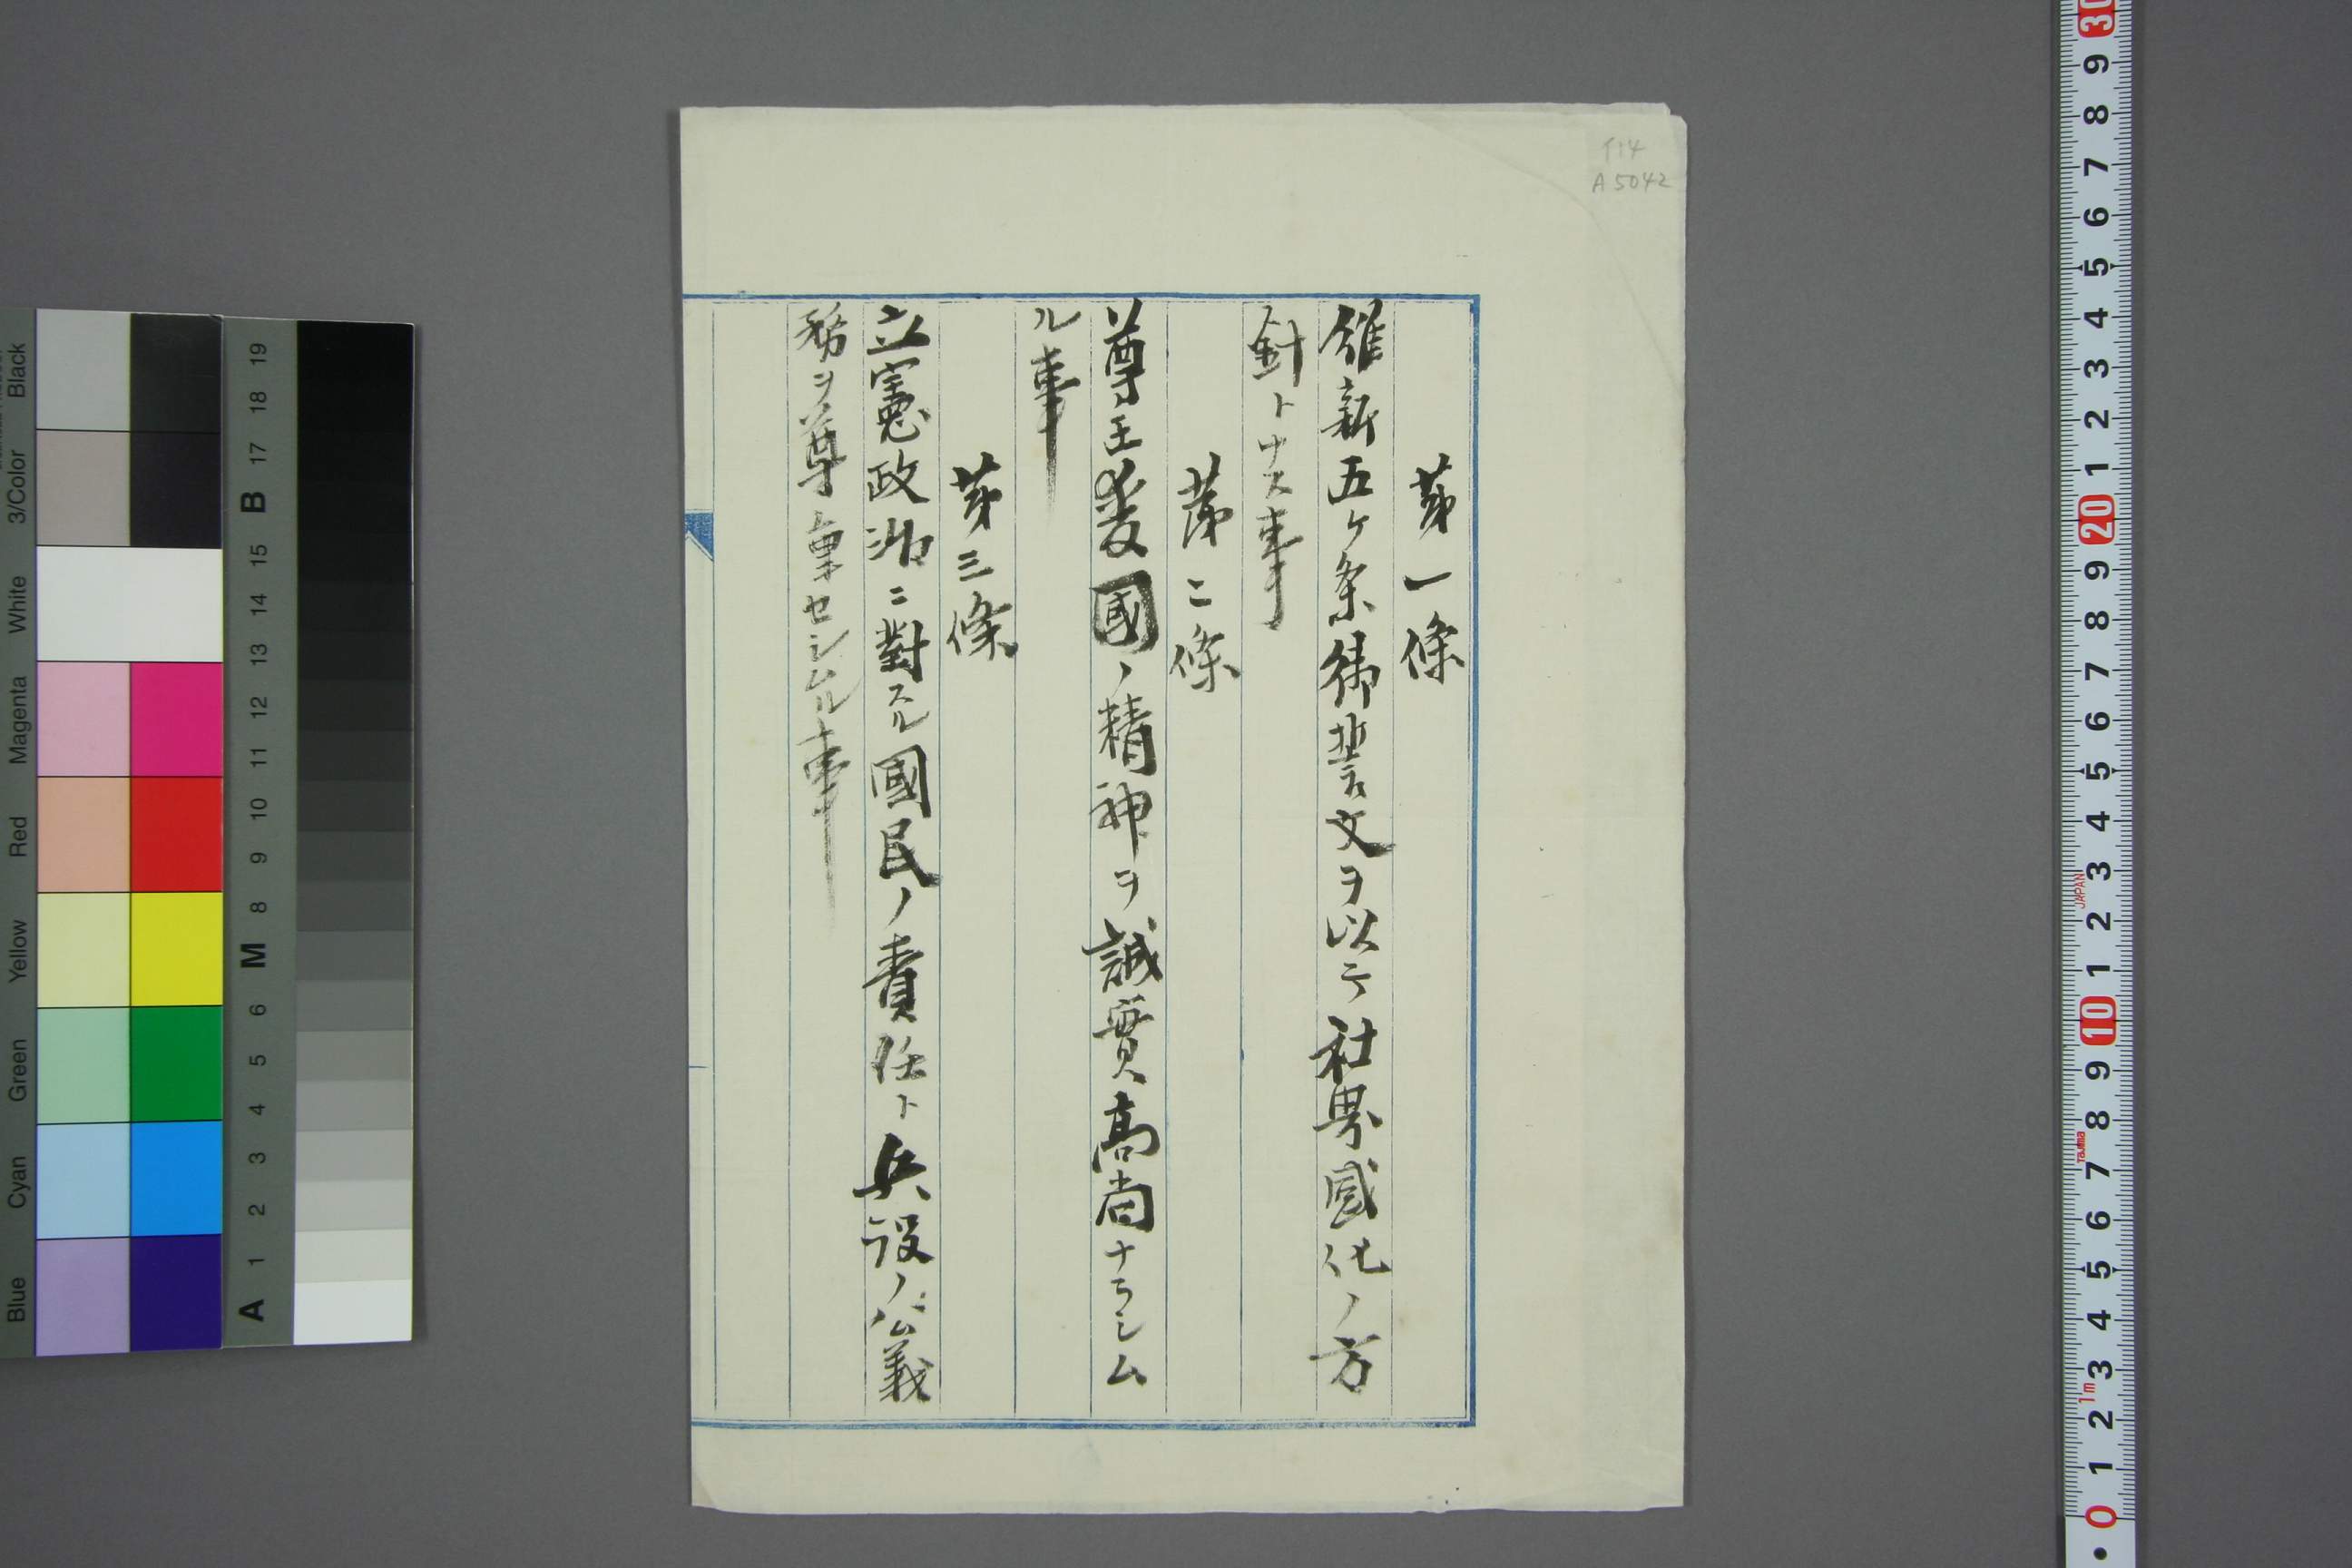 T14
A5042
第一條
維新五ケ条御誓文ヲ以テ社界感化ノ方
針トナス事
第二條
尊王愛國ノ精神ヲ誠實高尚ナラシム
ル事
第三條
立憲政治ニ對スル國民ノ責任ト兵役ノ公義
務ヲ尊重セシムル事
Blue Cyan Green Yellow Red Magenta White 3/Color Black
A 1 2 3 4 5 6 M 8 9 10 11 12 13 14 15 B 17 18 19
0 1 2 3 4 5 6 7 8 9 10 1 2 3 4 5 6 7 8 9 20 1 2 3 4 5 6 7 8 9 30
1m
Tajima
JAPAN